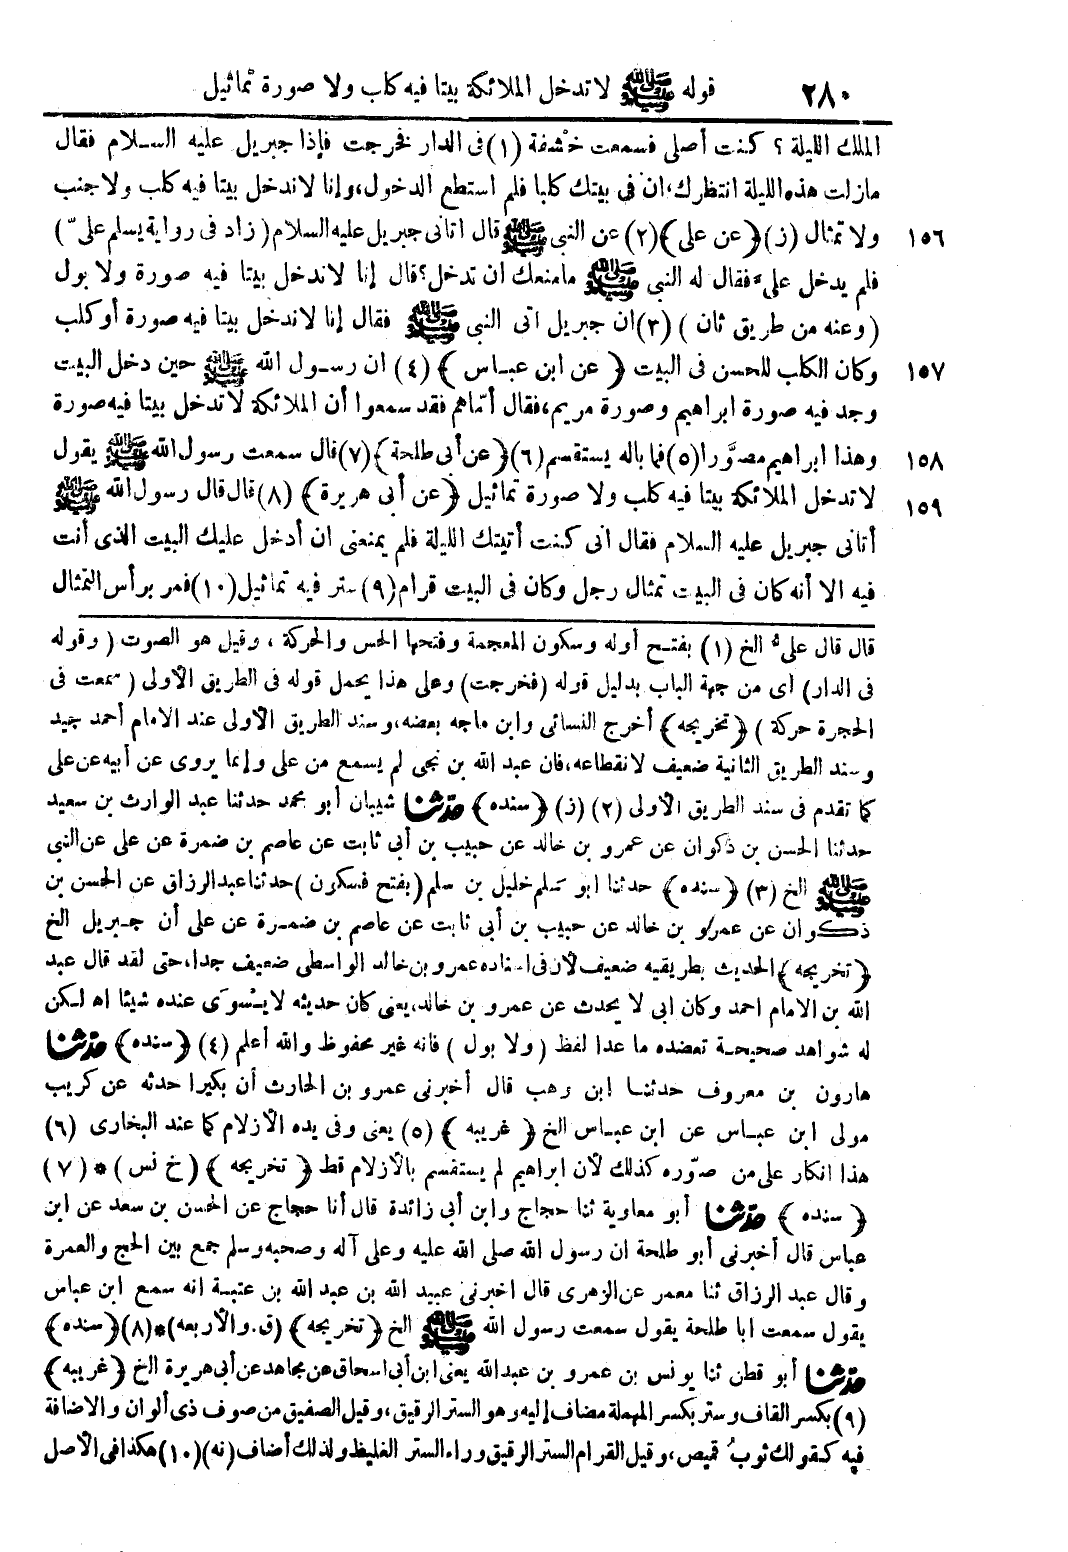 ٢٨٠ قوله ﷺ لا تدخل الملائكة بيتا فيه كلب ولا صورة تماثيل
الملك الليلة ؟ كنت أصلى فسمعت خشفة (١) فى الدار فخرجت فإذا جبريل عليه السلام فقال
مازلت هذه الليلة انتظرك، ان فى بيتك كلبا فلم استطع الدخول، وإنا لا ندخل بيتا فيه كلب ولا جنب
١٥٦ ولا تمثال (ز) ﴿عن على﴾ (٢) عن النبى ﷺ قال اتانى جبريل عليه السلام (زاد فى رواية يسلم علىّ)
فلم يدخل علىّ فقال له النبى ﷺ مامنعك ان تدخل؟ قال إنا لا ندخل بيتا فيه صورة ولا بول
(وعنه من طريق ثان) (٣) ان جبريل اتى النبى ﷺ فقال إنا لا ندخل بيتا فيه صورة أو كلب
١٥٧ وكان الكلب للحسن فى البيت ﴿عن ابن عباس﴾ (٤) ان رسول الله ﷺ حين دخل البيت
وجد فيه صورة ابراهيم وصورة مريم، فقال أمّاهم فقد سمعوا أن الملائكة لا تدخل بيتا فيه صورة
١٥٨ وهذا ابراهيم مصوَّرا (٥) فما باله يستقسم (٦) ﴿عن أبى طلحة﴾ (٧) قال سمعت رسول الله ﷺ يقول
١٥٩ لا تدخل الملائكة بيتا فيه كلب ولا صورة تماثيل ﴿عن أبى هريرة﴾ (٨) قال قال رسول الله ﷺ
أتانى جبريل عليه السلام فقال انى كنت أتيتك الليلة فلم يمنعنى ان أدخل عليك البيت الذى أنت
فيه الا أنه كان فى البيت تمثال رجل وكان فى البيت قرام (٩) ستر فيه تماثيل (١٠) فمر برأس التمثال
قال قال علىّ الخ (١) بفتح أوله وسكون المعجمة وفتحها الحس والحركة، وقيل هو الصوت (وقوله
فى الدار) اى من جهة الباب بدليل قوله (فخرجت) وعلى هذا يحمل قوله فى الطريق الأولى (سمعت فى
الحجرة حركة) ﴿تخريجه﴾ أخرج النسائى وابن ماجه بعضه، وسند الطريق الأولى عند الامام أحمد جيد
وسند الطريق الثانية ضعيف لانقطاعه، فان عبد الله بن نجى لم يسمع من على وإنما يروى عن أبيه عن على
كما تقدم فى سند الطريق الأولى (٢) (ز) ﴿سنده﴾ حدثنا شيبان أبو محمد حدثنا عبد الوارث بن سعيد
حدثنا الحسن بن ذكوان عن عمرو بن خالد عن حبيب بن أبى ثابت عن عاصم بن ضمرة عن على عن النبى
ﷺ الخ (٣) ﴿سنده﴾ حدثنا ابو سَلم خليل بن سلم (بفتح فسكون) حدثنا عبد الرزاق عن الحسن بن
ذكوان عن عمرو بن خالد عن حبيب بن أبى ثابت عن عاصم بن ضمرة عن على أن جبريل الخ
﴿تخريجه﴾ الحديث بطريقيه ضعيف لأن فى اسناده عمرو بن خالد الواسطى ضعيف جدا، حتى لقد قال عبد
الله بن الامام احمد وكان ابى لا يحدث عن عمرو بن خالد، يعنى كان حديثه لا يسوَى عنده شيئا اهـ لكن
له شواهد صحيحة تعضده ما عدا لفظ (ولا بول) فانه غير محفوظ والله أعلم (٤) ﴿سنده﴾ حدثنا
هارون بن معروف حدثنا ابن وهب قال أخبرنى عمرو بن الحارث أن بكيرا حدثه عن كريب
مولى ابن عباس عن ابن عباس الخ ﴿غريبه﴾ (٥) يعنى وفى يده الأزلام كما عند البخارى (٦)
هذا انكار على من صوّره كذلك لأن ابراهيم لم يستقسم بالأزلام قط ﴿تخريجه﴾ (خ نس) * (٧)
﴿سنده﴾ حدثنا أبو معاوية ثنا حجاج وابن أبى زائدة قال أنا حجاج عن الحسن بن سعد عن ابن
عباس قال أخبرنى أبو طلحة ان رسول الله صلى الله عليه وعلى آله وصحبه وسلم جمع بين الحج والعمرة
وقال عبد الرزاق ثنا معمر عن الزهرى قال اخبرنى عبيد الله بن عبد الله بن عتبة انه سمع ابن عباس
يقول سمعت ابا طلحة يقول سمعت رسول الله ﷺ الخ ﴿تخريجه﴾ (ق. والأربعه) * (٨) ﴿سنده﴾
حدثنا أبو قطن ثنا يونس بن عمرو بن عبدالله يعنى ابن أبى اسحاق عن مجاهد عن أبى هريرة الخ ﴿غريبه﴾
(٩) بكسر القاف وستر بكسر المهملة مضاف إليه وهو الستر الرقيق، وقيل الصفيق من صوف ذى ألوان والاضافة
فيه كقولك ثوبُ قميص، وقيل القرام الستر الرقيق وراء الستر الغليظ ولذلك أضاف (نه) (١٠) هكذا فى الأصل